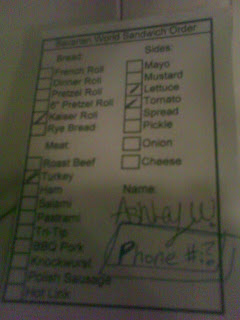 Bavarian World Sandwich Order
Bread
French Roll
Dinner Roll
Pretzel Roll
6" Pretzel Roll
Kaiser Roll
Rye Bread
Meat:
Roast Beef
Turkey
Ham
Salami
Pastrami
Tri-Tip
BBQ Pork
Knockwurst
Polish Sausage
Hot Link
Sides:
Mayo
Mustard
Lettuce
Tomato
Spread
Pickle
Onion
Cheese
Name:
Phone #?